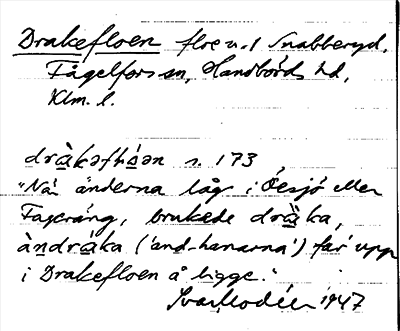 Drakefloen floe u. 1 Snabberyd,
Fågelfors sn, Handbörds hd,
Klm. l.
dràkəflɷ́ən s. 173
"Nä' änderna låg i Öesjö eller
Fageräng, brukede dräka,
àndráka ('and-hanarna') far' upp
i Drakefloen å ligge."
Ivar Modéer 1947